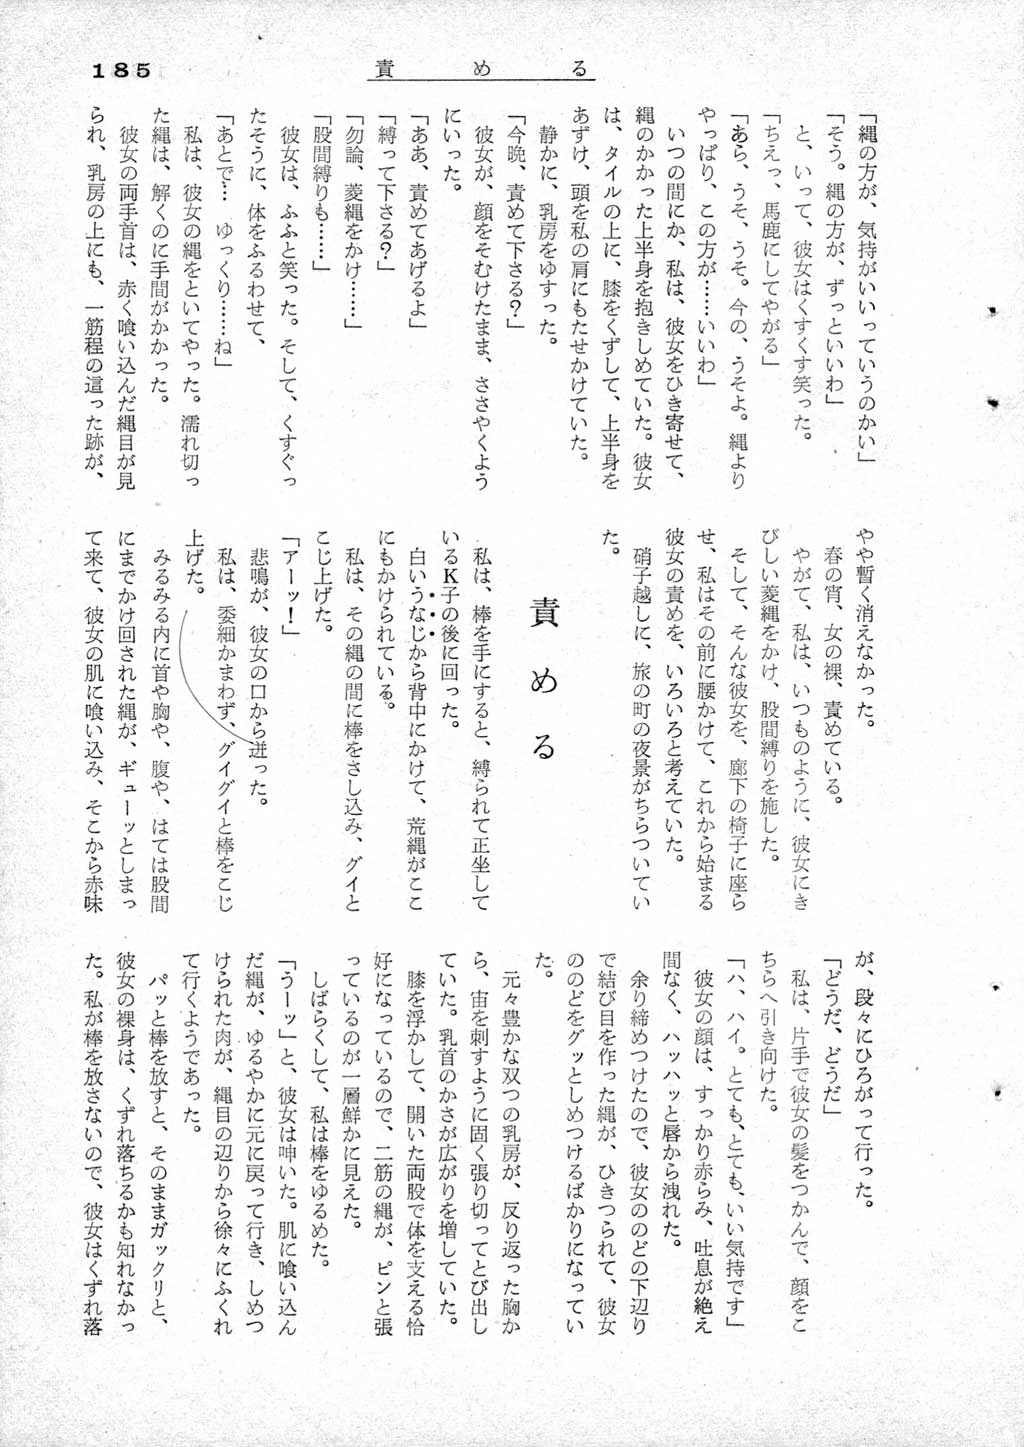 185
責める
「縄の方が、気持がいいっていうのかい」
「そう。縄の方が、ずっといいわ」
と、いって、彼女はくすくす笑った。
「ちえっ、馬鹿にしてやがる」
「あら、うそ、うそ。今の、うそよ。縄より
やっぱり、この方が……いいわ」
いつの間にか、私は、彼女をひき寄せて、
縄のかかった上半身を抱きしめていた。彼女
は、タイルの上に、膝をくずして、上半身を
あずけ、頭を私の肩にもたせかけていた。
静かに、乳房をゆすった。
「今晩、責めて下さる？」
彼女が、顔をそむけたまま、ささやくよう
にいった。
「ああ、責めてあげるよ」
「縛って下さる？」
「勿論、菱縄をかけ……」
「股間縛りも……」
彼女は、ふふと笑った。そして、くすぐっ
たそうに、体をふるわせて、
「あとで… ゆっくり……ね」
私は、彼女の縄をといてやった。濡れ切っ
た縄は、解くのに手間がかかった。
彼女の両手首は、赤く喰い込んだ縄目が見
られ、乳房の上にも、一筋程の這った跡が、
やや暫く消えなかった。
春の宵、女の裸、責めている。
やがて、私は、いつものように、彼女にき
びしい菱縄をかけ、股間縛りを施した。
そして、そんな彼女を、廊下の椅子に座ら
せ、私はその前に腰かけて、これから始まる
彼女の責めを、いろいろと考えていた。
硝子越しに、旅の町の夜景がちらついてい
た。
責める
私は、棒を手にすると、縛られて正坐して
いるK子の後に回った。
白いうなじから背中にかけて、荒縄がここ
にもかけられている。
私は、その縄の間に棒をさし込み、グイと
こじ上げた。
「アーッ！」
悲鳴が、彼女の口から迸った。
私は、委細かまわず、グイグイと棒をこじ
上げた。
みるみる内に首や胸や、腹や、はては股間
にまでかけ回された縄が、ギューッとしまっ
て来て、彼女の肌に喰い込み、そこから赤味
が、段々にひろがって行った。
「どうだ、どうだ」
私は、片手で彼女の髪をつかんで、顔をこ
ちらへ引き向けた。
「ハ、ハイ。とても、とても、いい気持です」
彼女の顔は、すっかり赤らみ、吐息が絶え
間なく、ハッハッと唇から洩れた。
余り締めつけたので、彼女ののどの下辺り
で結び目を作った縄が、ひきつられて、彼女
ののどをグッとしめつけるばかりになってい
た。
元々豊かな双つの乳房が、反り返った胸か
ら、宙を刺すように固く張り切ってとび出し
ていた。乳首のかさが広がりを増していた。
膝を浮かして、開いた両股で体を支える恰
好になっているので、二筋の縄が、ピンと張
っているのが一層鮮かに見えた。
しばらくして、私は棒をゆるめた。
「うーッ」と、彼女は呻いた。肌に喰い込ん
だ縄が、ゆるやかに元に戻って行き、しめつ
けられた肉が、縄目の辺りから徐々にふくれ
て行くようであった。
パッと棒を放すと、そのままガックリと、
彼女の裸身は、くずれ落ちるかも知れなかっ
た。私が棒を放さないので、彼女はくずれ落